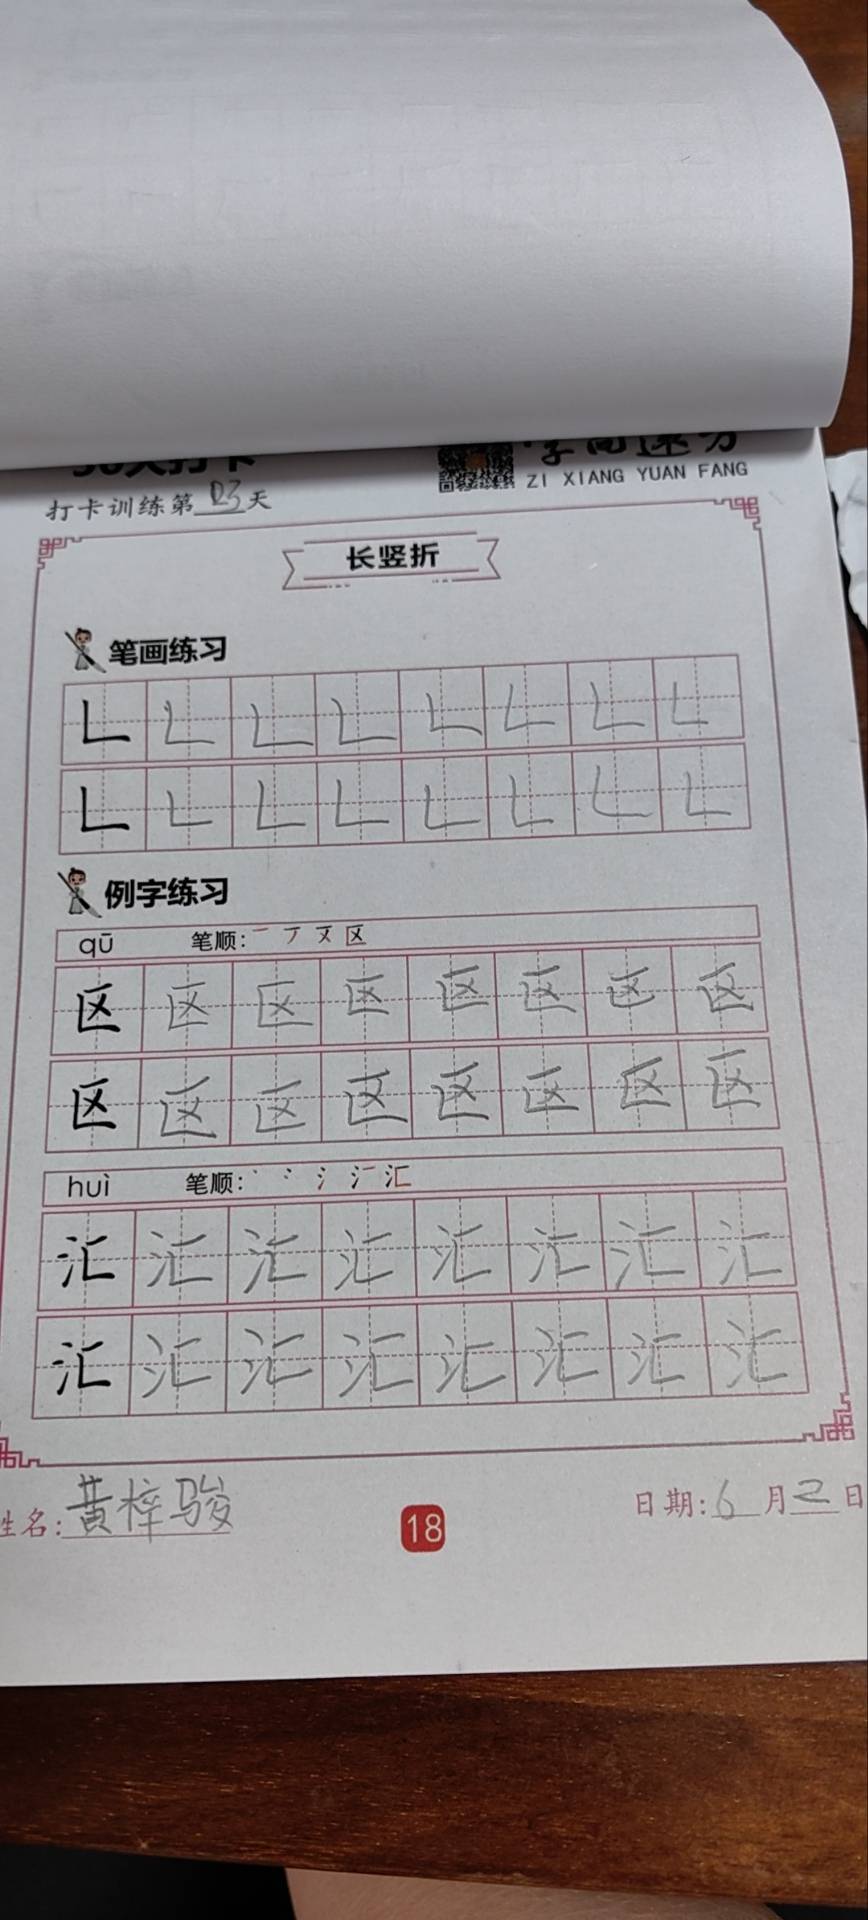 ZI XIANG YUAN FANG
打卡训练第D3天
长竖折
笔画练习
例字练习
qū 笔顺:
区 区 区 区 区 区 区 区
区 区 区 区 区 区 区 区
huì 笔顺: 汇
汇 汇 汇 汇 汇 汇 汇 汇
汇 汇 汇 汇 汇 汇 汇 汇
姓名:黄梓骏
18
日期:6月2日